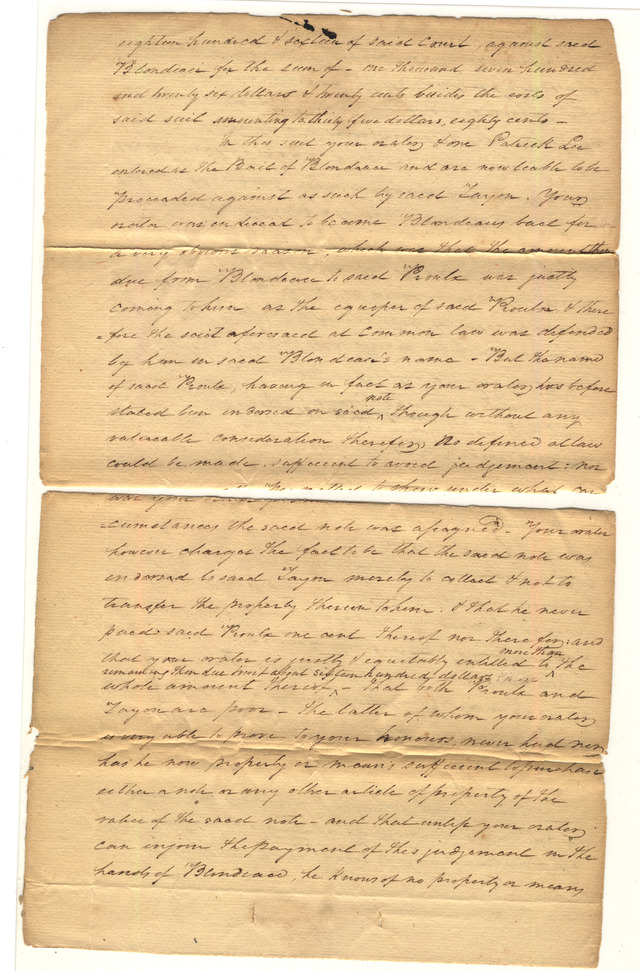 eighteen hundred & sixteen of said Court, against said
Blondeau for the sum of - one thousand seven hundred
and twenty six dollars & twenty cents besides the costs of
said suit amounting to thirty five dollars, eighty cents -
In this suit your orator, & one Patrick Lee
entered as the Bail of Blondeau and are now leable to be
proceeded against as such by said Tayon. Your
orator was induced to become Blondeau's bail for
a very obvious reason, which was that the amount then
due from Blondeau to said Proulx was justly
coming to him as the
of said Proulx & there
fore the suit aforesaid at common law was defended
by him in said Blondeau's name - But the name
of said Proulx, having in fact as your orator has before
stated been indorsed on said note, though without any
valueable consideration therefor, no defence at law
could be made sufficient to avoid judgement: nor
was your
to show under what cir
=cumstances the said note was assigned - Your orator
however charges the fact to be that the said note was
indorsed to said Tayon merely to collect & not to
transfer the property therein to him. & that he never
paid said Proulx one cent thereof nor therefor; and
that your orator is justly & equitably entitled to more than the
remaining then due
about sixteen hundred dollars
whole amount thereof, - that both Proulx and
Tayon are poor - the latter of whom your orator,
is
able to prove to your honours, never had nor
has he now property or means sufficient to purchase
either a note or any other article of property of the
value of the said note - and that unless your orator
can injoin the payment of this judgement in the
hands of Blondeau, he knows of no property or means